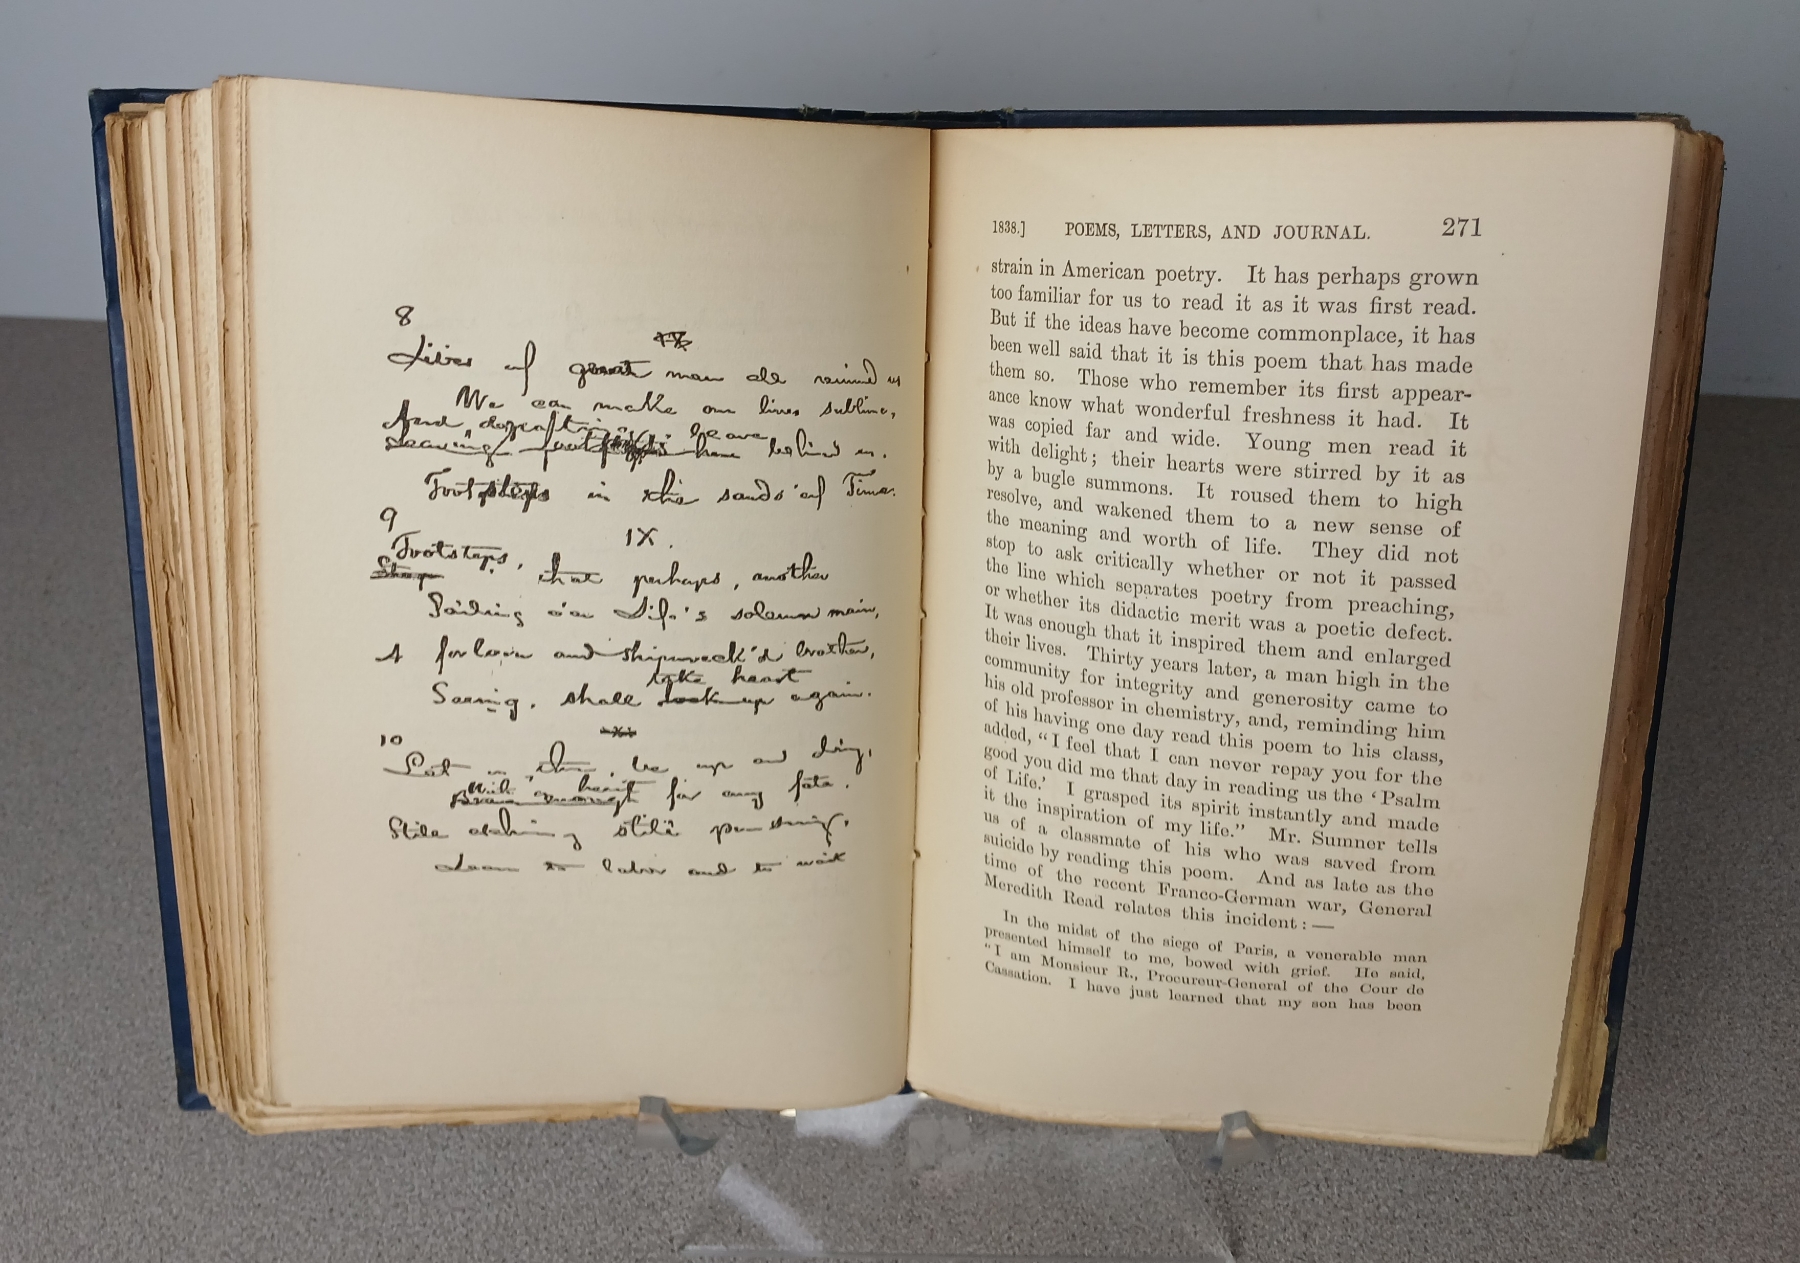 8
Lives of great men all remind us
We can make our lives sublime,
And, departing, leave
Leaving footsteps here behind us.
Footsteps in the sands of Time.
9
IX.
Footsteps, that perhaps, another
Steps
Sailing o'er Life's solemn main,
A forlorn and shipwreck'd brother,
take heart
Seeing, shall look up again.
10
Let us, then, be up and doing,
With a heart for any fate.
Still achieving, still pursuing,
Learn to labor and to wait
1838.] POEMS, LETTERS, AND JOURNAL. 271
strain in American poetry. It has perhaps grown
too familiar for us to read it as it was first read.
But if the ideas have become commonplace, it has
been well said that it is this poem that has made
them so. Those who remember its first appear-
ance know what wonderful freshness it had. It
was copied far and wide. Young men read it
with delight; their hearts were stirred by it as
by a bugle summons. It roused them to high
resolve, and wakened them to a new sense of
the meaning and worth of life. They did not
stop to ask critically whether or not it passed
the line which separates poetry from preaching,
or whether its didactic merit was a poetic defect.
It was enough that it inspired them and enlarged
their lives. Thirty years later, a man high in the
community for integrity and generosity came to
his old professor in chemistry, and, reminding him
of his having one day read this poem to his class,
added, "I feel that I can never repay you for the
good you did me that day in reading us the 'Psalm
of Life.' I grasped its spirit instantly and made
it the inspiration of my life." Mr. Sumner tells
us of a classmate of his who was saved from
suicide by reading this poem. And as late as the
time of the recent Franco-German war, General
Meredith Read relates this incident: —
In the midst of the siege of Paris, a venerable man
presented himself to me, bowed with grief. He said,
"I am Monsieur R., Procureur-General of the Cour de
Cassation. I have just learned that my son has been